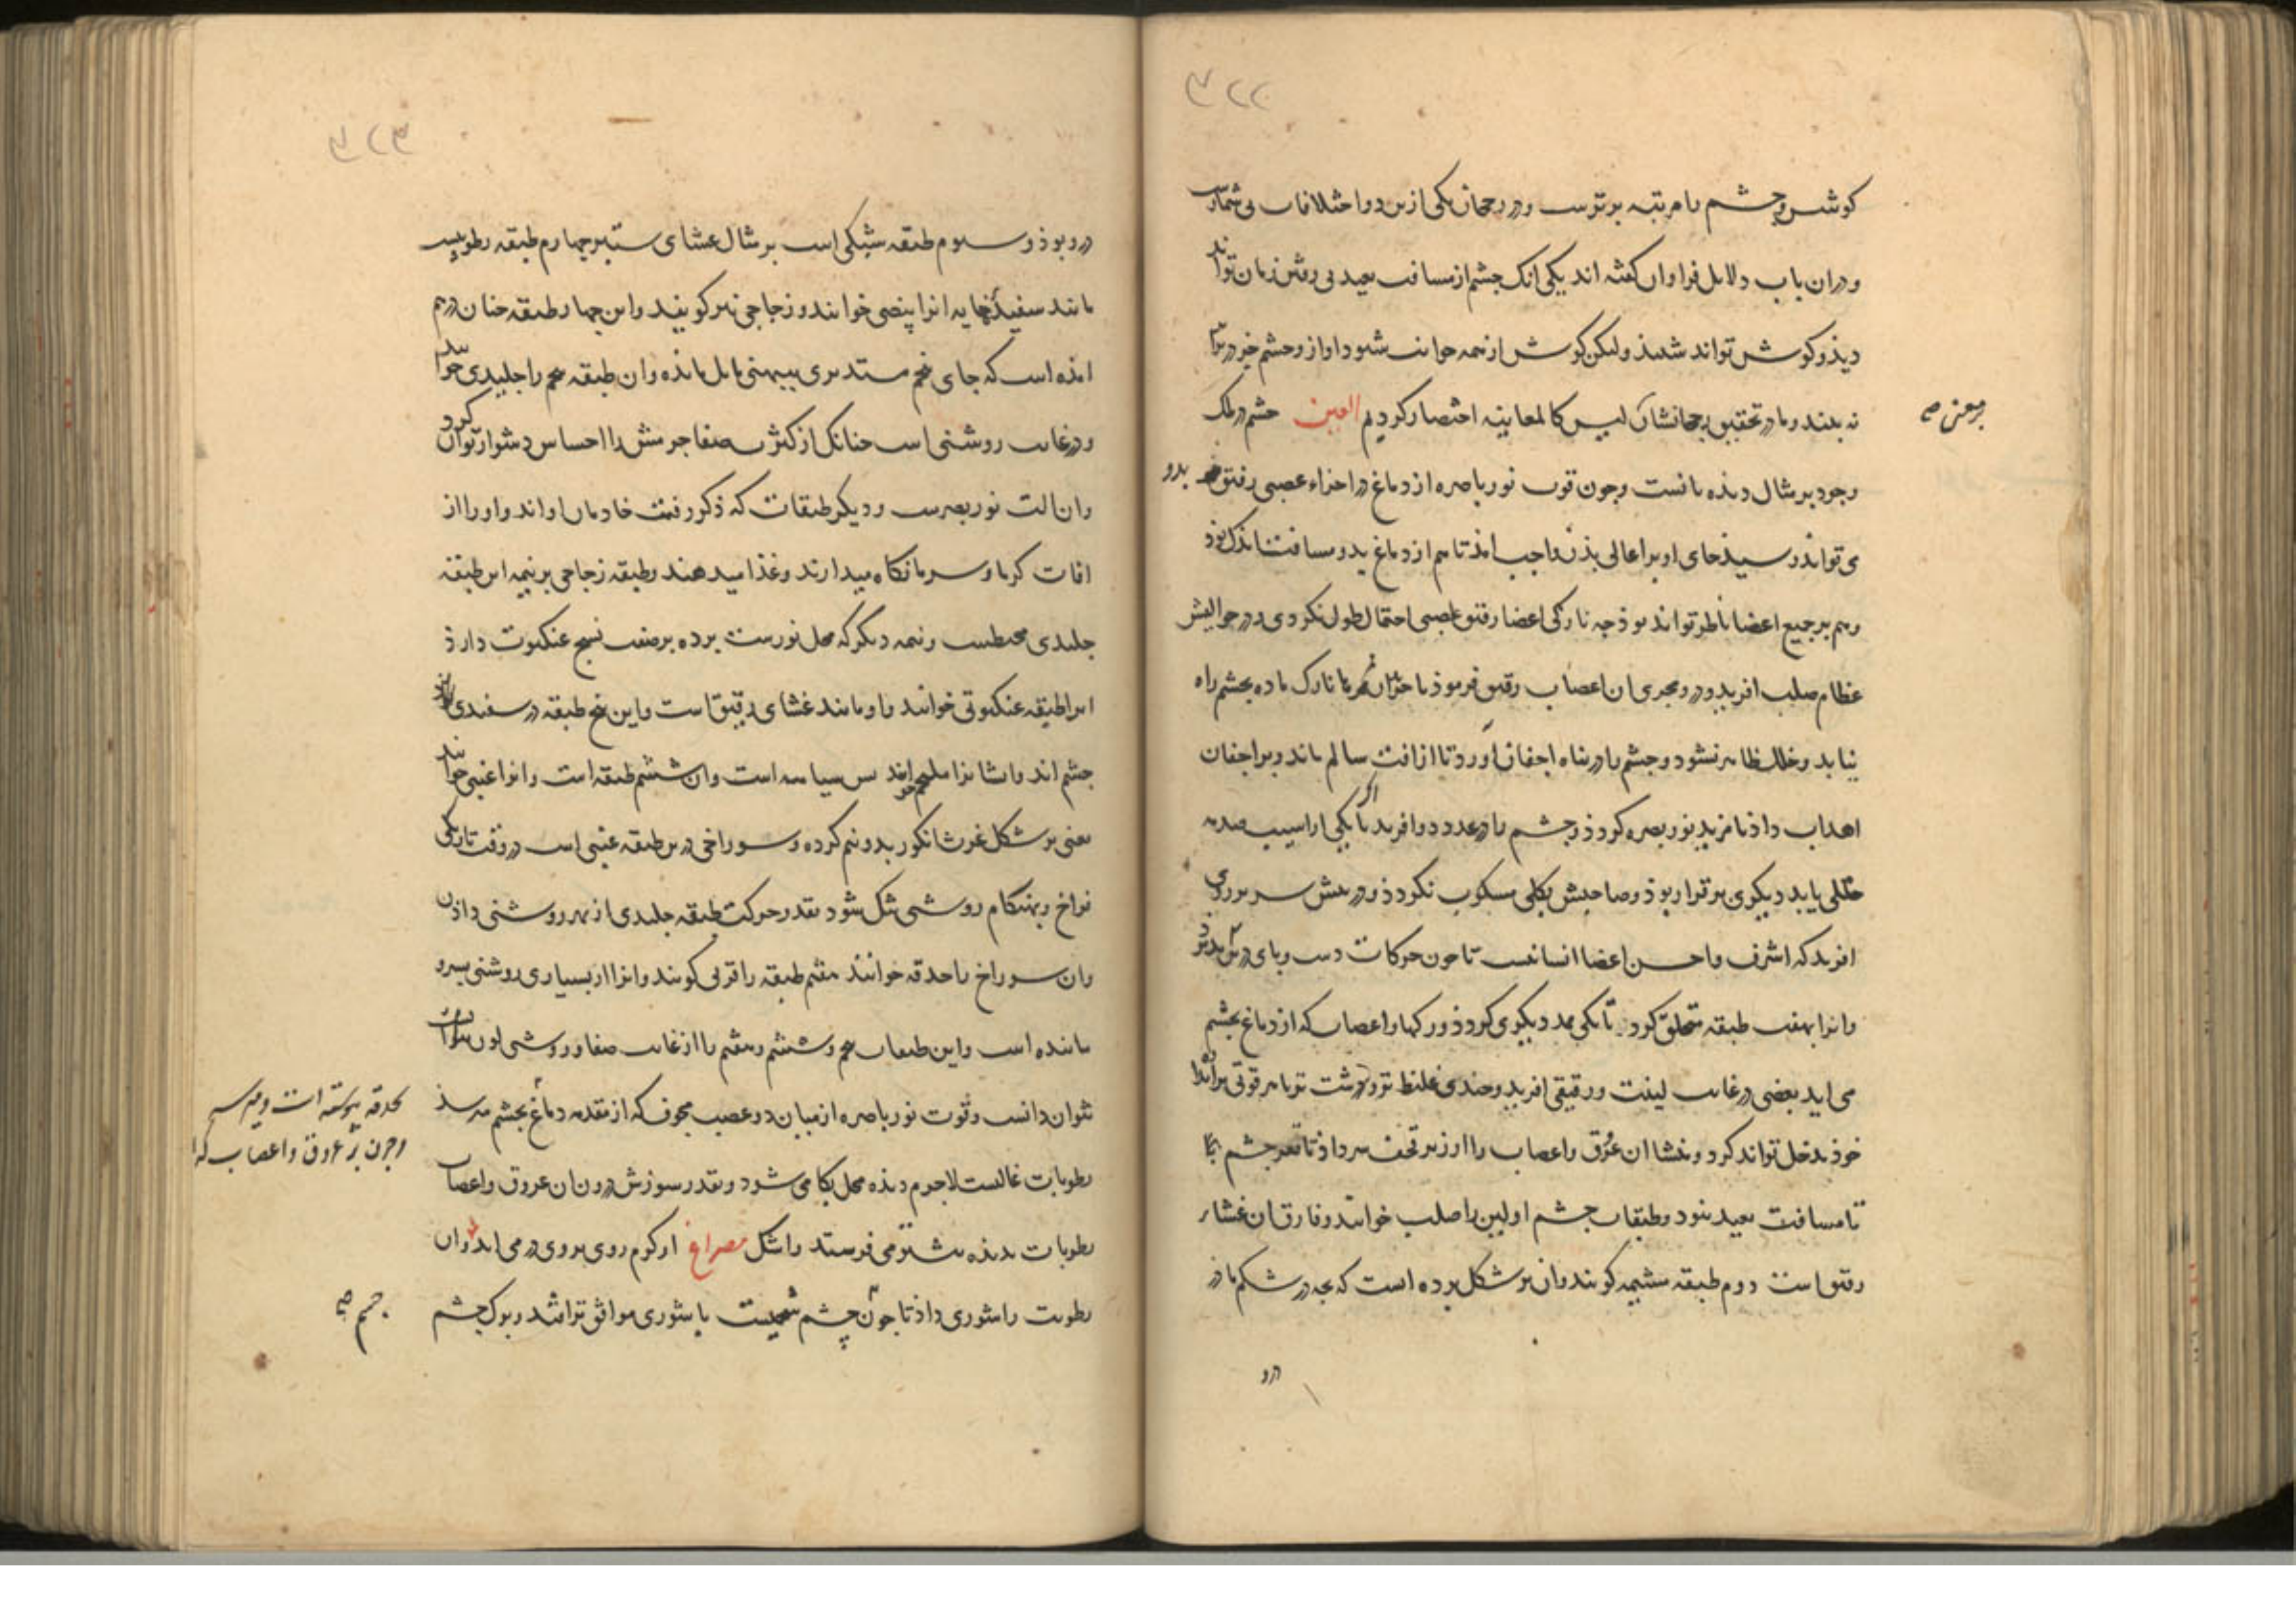 ۳۲۲
کوش و چشم با مرتبه برترست و در رجحان یکی ازین دو اختلافات بی شمارست
و دران باب دلایل فراوان کفته اند یکی انک چشم از مسافت بعید بی رفتن زمان تواند
دید و کوش تواند شنید ولیکن کوش از همه جوانب شنود اواز و چشم جز در برابر
نه بیند و ما در تحقیق رجحانشان لیس کالمعاینه اختصار کردیم العین چشم در ملک
وجود بر مثال دیده بانست و چون قوت نور باصره از دماغ در اجزاء عصبی رقیق بدو
می تواند رسید جای او بر اعالی بدن واجب امد تا هم از دماغ بدو مسافت اندک بود
و هم بر جمیع اعضا ناظر تواند بود چه نازکی اعضا رقیق عصبی احتمال طول نکردی و در حوالیش
عظام صلب افرید و در مجری ان اعصاب رقیق فرمود تا نازک ماده بچشم راه
نیابد و خلل ظاهر نشود و چشم را در پناه اجفان اورد تا از افت سالم ماند و بر اجفان
اهداب داد تا مزید نور بصر کردد و چشم را در عدد دو افرید تا اکر یکی را اسیب صدمه
خللی یابد دیکری برقرار بود و صاحبش بکلی منکوب نکردد و در پیش سر بر روی
افرید که اشرف و احسن اعضا انسانست تا چون حرکات دست و پای در پیش بدید
و انرا بهفت طبقه متعلق کرد تا یکی ممد دیکری کردد و رکها و اعصاب که از دماغ بچشم
می اید بعضی در غایت لینت و رقیقی افرید و چندی غلیظ تر و درشت تر تا هر قوتی براندازه
خود مدخل تواند کرد و منشا ان عروق و اعصاب را از زیر قحف سر داد تا قعر چشم
تا مسافت بعید نبود و طبقات چشم اولین را صلب خوانند و فارق ان غشاء
رقیق است دوم طبقه مشیمه کویند و ان بر شکل پرده است که بچه در شکم مادر
درو
بر معنی صح
۳۲۳
درو بود و سوم طبقه شبکی است بر مثال غشای ستبر چهارم طبقه رطوبیست
مانند سفیده خایه انرا بیضی خوانند و زجاجی نیز کویند و این چهار طبقه چنان درهم
امده است که جای پنجم مستدیری ببهنی مایل مانده و ان طبقه پنجم را جلیدی خوانند
و در غایت روشنی است چنانک از کثرت صفا جرمش را احساس دشوار توان کرد
و ان الت نور بصرست و دیکر طبقات که ذکر رفت خادمان او اند و او را از
افات کرما و سرما نکاه میدارند و غذا میدهند و طبقه زجاجی بر نیمه این طبقه
جلیدی محیطست و نیمه دیکر که محل نورست پرده بر صفت نسج عنکبوت دارد
انرا طبقه عنکبوتی خوانند و او مانند غشای رقیق است و این پنج طبقه در سفیدی
چشم اند و ایشانرا ملتحم خوانند پس سیاهه است و ان ششم طبقه است و انرا عنبی خوانند
یعنی بر شکل غرث انکور بدو نیم کرده و سوراخی درین طبقه عنبی است در وقت تاریکی
فراخ و بهنکام روشنی تنک شود بقدر حرکت طبقه جلیدی از بهر روشنی دادن
و ان سوراخ را حدقه خوانند هفتم طبقه را قرنی کویند و انرا از بسیاری روشنی بسرو
ماننده است و این طبقات پنجم و ششم و هفتم را از غایت صفا و روشنی لون
نتوان دانست و قوت نور باصره از میان دو عصب مجوف که از مقدمه دماغ بچشم میرسد
رطوبات غالبست لاجرم دیده محل بکا می شود و بقدر سوزش درون ان عروق و اعصاب
رطوبات بدیده بیشتر می فرستد و اشک مصراع از کرم روی بر وی در می اید و ان
رطوبت را شوری داد تا چون چشم شحمیست با شوری موافق تر باشد و بوک چشم
بحدقه پیوسته است
و چون عروق و اعصاب که
چشم صح